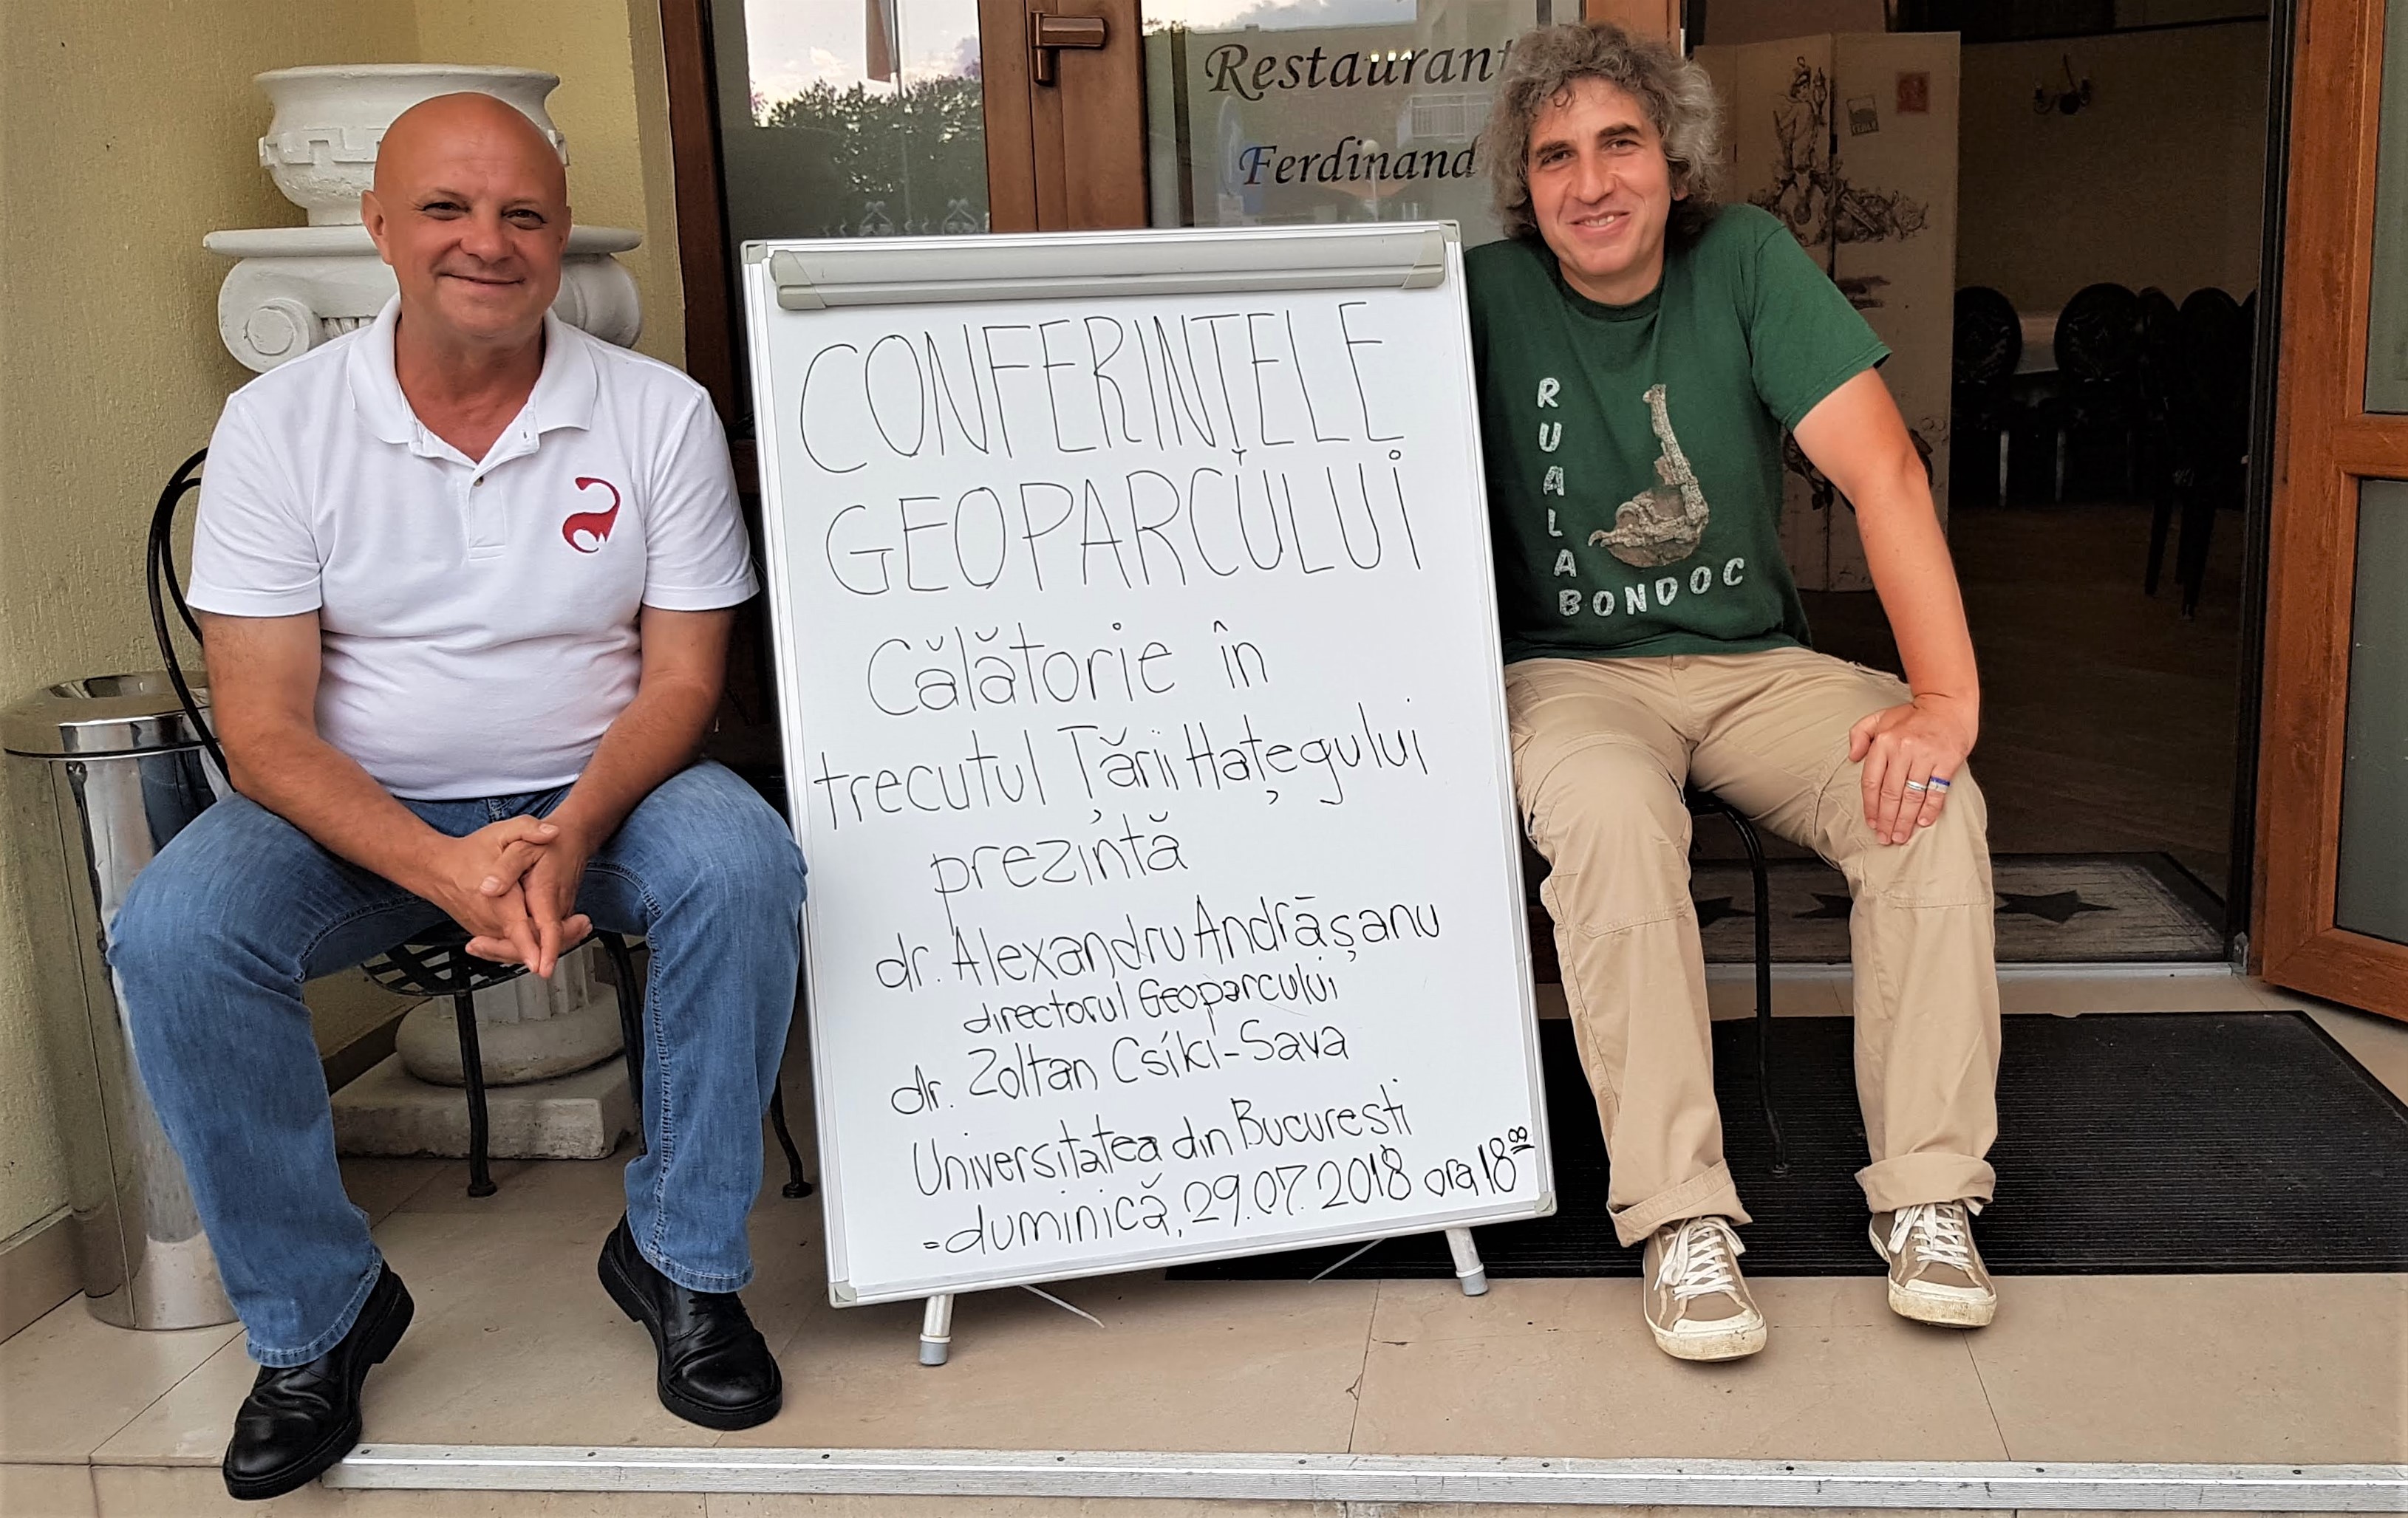 Restaurant
Ferdinand
CONFERINȚELE
GEOPARCULUI
Călătorie în
trecutul Țării Hațegului
prezintă
dr. Alexandru Andrășanu
directorul Geoparcului
dr. Zoltan Csíki-Sava
Universitatea din Bucuresti
=duminică, 29.07.2018 ora 18⁰⁰
RUALA
BONDOC